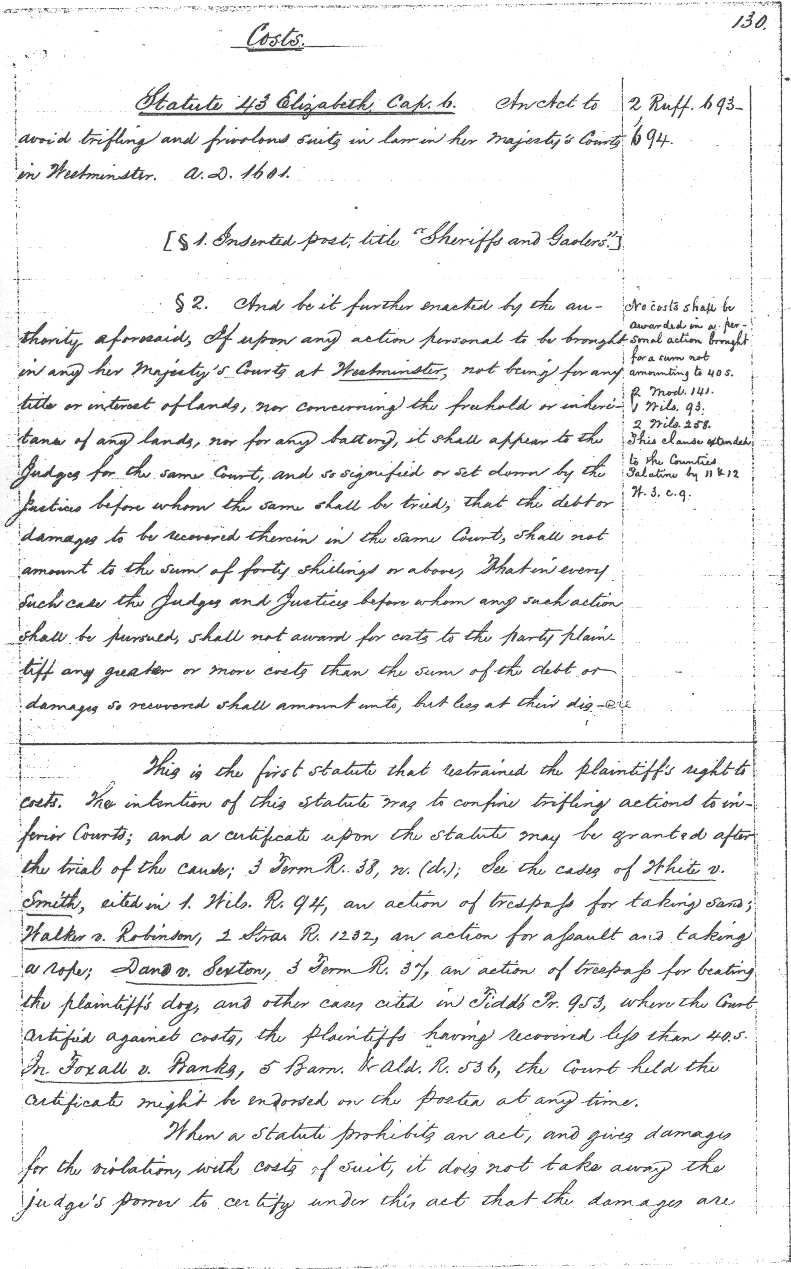 130.
Costs.
Statute 43 Elizabeth, Cap. 6. An Act to
avoid trifling and frivolous suits in law in her Majesty's Courts
in Westminster. A.D. 1601.
2 Ruff. 693-
694.
[§ 1. Inserted post, title "Sheriffs and Gaolers".]
§ 2. And be it further enacted by the au-
thority aforesaid, If upon any action personal to be brought
in any her Majesty's Courts at Westminster, not being for any
title or interest of lands, nor concerning the freehold or inheri-
tance of any lands, nor for any battery, it shall appear to the
Judges for the same Court, and so signified or set down by the
Justices before whom the same shall be tried, that the debt or
damages to be recovered therein in the same Court, shall not
amount to the sum of forty shillings or above, That in every
such case the Judges and Justices before whom any such action
shall be pursued, shall not award for costs to the party plain-
tiff any greater or more costs than the sum of the debt or
damages so recovered shall amount unto, but less at their dis-
No costs shall be
awarded in a per-
sonal action brought
for a sum not
amounting to 40s.
2 Mod. 141.
1 Wils. 93.
2 Wils. 258.
This clause extended
to the Counties
Palatine by 11 & 12
W. 3. c. 9.
This is the first statute that restrained the plaintiff's right to
costs. The intention of this statute was to confine trifling actions to in-
ferior Courts; and a certificate upon the statute may be granted after
the trial of the cause; 3 Term R. 38, n. (d.); See the cases of White v.
Smith, cited in 1. Wils. R. 94, an action of trespass for taking sand;
Walker v. Robinson, 2 Stra. R. 1232, an action for assault and taking
a rope; Dand v. Sexton, 3 Term R. 37, an action of trespass for beating
the plaintiff's dog, and other cases cited in Tidd's Pr. 953, where the Court
certified against costs, the plaintiffs having recovered less than 40.s.
In Foxall v. Banks, 5 Barn. & Ald. R. 536, the Court held the
certificate might be endorsed on the postea at any time.
When a statute prohibits an act, and gives damages
for the violation, with costs of suit, it does not take away the
judge's power to certify under this act that the damages are